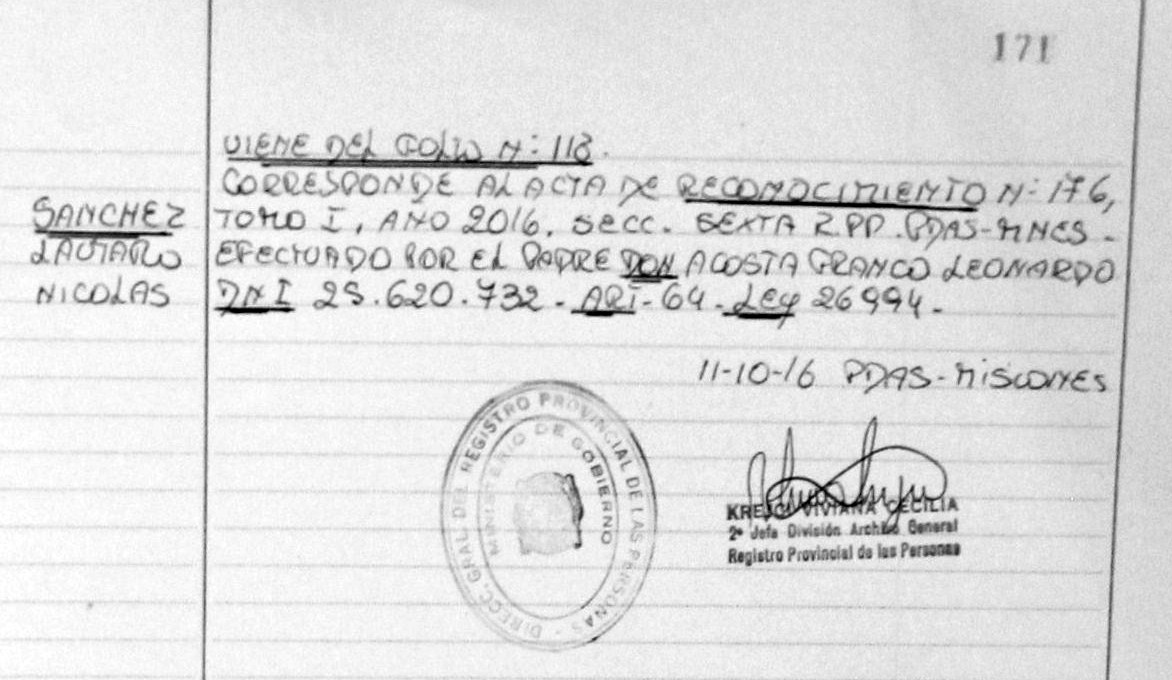 171
VIENE DEL FOLIO N: 118.
CORRESPONDE AL ACTA DE RECONOCIMIENTO N: 176,
SANCHEZ TOMO I, AÑO 2016, SECC. SEXTA R.PP. PDAS-MNES-
LAUTARO EFECTUADO POR EL PADRE DON ACOSTA FRANCO LEONARDO
NICOLAS DNI 25.620.732 - ART-64-LEY 26994-
11-10-16 PDAS-MISIONES
DIRECC. GRAL DEL REGISTRO PROVINCIAL DE LAS PERSONAS -
MINISTERIO DE GOBIERNO
VIVIANA CECILIA
2º Jefa División Archivo General
Registro Provincial de las Personas